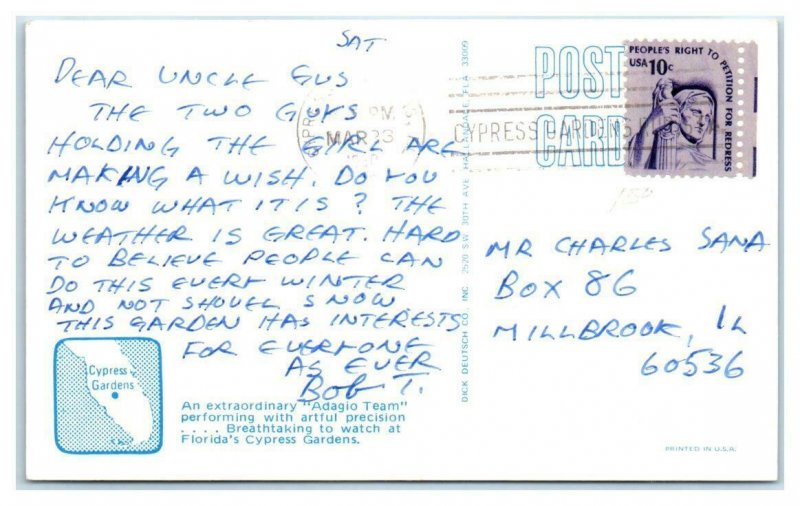 SAT
DEAR UNCLE GUS
THE TWO GUYS
HOLDING THE GIRL ARE
MAKING A WISH. DO YOU
KNOW WHAT IT IS? THE
WEATHER IS GREAT. HARD
TO BELIEVE PEOPLE CAN
DO THIS EVERY WINTER
AND NOT SHOVEL SNOW
THIS GARDEN HAS INTERESTS
FOR EVERYONE
AS EVER
BOB T.
Cypress
Gardens
An extraordinary "Adagio Team"
performing with artful precision
. . . . Breathtaking to watch at
Florida's Cypress Gardens.
DICK DEUTSCH CO., INC. 2520 S.W. 30TH AVE. HALLANDALE, FLA. 33009
POST
CARD
PM
MAR 23
CYPRESS GARDENS
PEOPLE'S RIGHT TO PETITION FOR REDRESS
USA 10c
MR CHARLES SANA
BOX 86
MILLBROOK, IL
60536
PRINTED IN U.S.A.